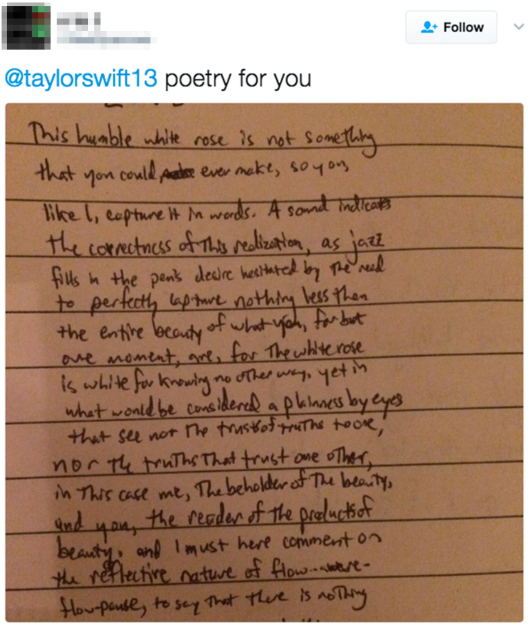 Follow
@taylorswift13 poetry for you
This humble white rose is not something
that you could ever make, so you,
like I, capture it in words. A sound indicates
the correctness of this realization, as jazz
fills in the pen's desire hesitated by the need
to perfectly capture nothing less than
the entire beauty of what you, for but
one moment, are, for the white rose
is white for knowing no other way, yet in
what would be considered a plainness by eyes
that see not the trust of truths
nor the truths that trust one other,
in this case me, the beholder of the beauty,
and you, the reader of the product of
beauty. and I must here comment on
the reflective nature of flow--
flow-pause, to say that there is nothing